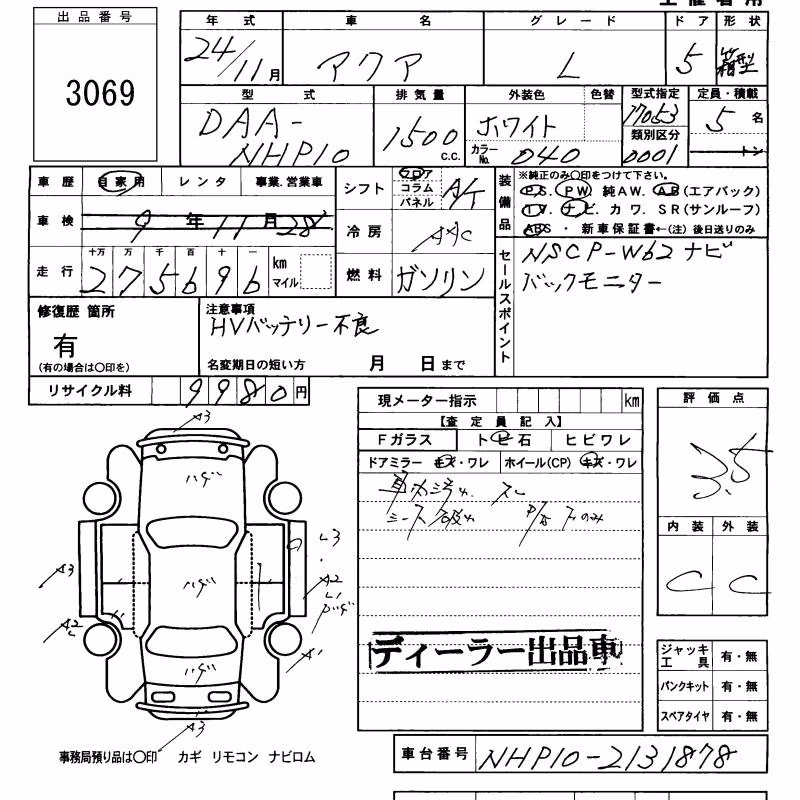 出品番号
3069
年式 車名 グレード ドア 形状
24/11月 アクア L 5 箱型
型式 排気量 外装色 色替 型式指定 定員・積載
DAA-NHP10 1500c.c. ホワイト 17053 5名
類別区分
カラーNo. 040 0001 トン
車歴 自家用 レンタ 事業.営業車
シフト フロア コラム パネル A/T
装備品
※純正のみ〇印をつけて下さい。
P.S. P.W. 純AW. A.B(エアバック)
T.V. ナビ. カワ. S.R(サンルーフ)
ABS ・ 新車保証書←(注)後日送りのみ
車検 9年11月28
冷房 AAC
走行 十万 万 千 百 十 一
275696 km マイル
燃料 ガソリン
セールスポイント
NSCP-W62 ナビ
バックモニター
修復歴 箇所
有
(有の場合は〇印を)
注意事項
HVバッテリー不良
名変期日の短い方 月 日まで
リサイクル料 9980円
現メーター指示 km
【査定員記入】
Fガラス トビ石 ヒビワレ
ドアミラー キズ・ワレ ホイール(CP) キズ・ワレ
シース破れ
ディーラー出品車
評価点
3.5
内装 外装
C C
ジャッキ工具 有・無
パンクキット 有・無
スペアタイヤ 有・無
A3
ハダ
A3
ハダ
L3
A2
A2
A1
ハダ
A3
事務局預り品は〇印 カギ リモコン ナビロム
車台番号 NHP10-2131878